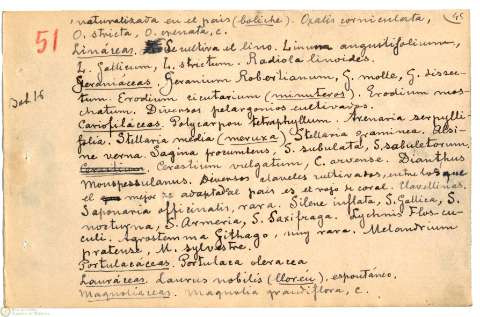 naturalizada en el país (boliche). Oxalis corniculata,
51
O. stricta, O. crenata, c.
Lináceas. Se cultiva el lino. Linum angustifolium,
L. Gallicum, L. strictum. Radiola linoides.
Jul. 16
Geraniáceas. Geranium Robertianum, G. molle, G. dissec-
tum. Erodium cicutarium (minuteros). Erodium mos-
chatum. Diversos pelargonios cultivados.
Cariofiláceas. Polycarpon tetraphyllum. Arenaria serpylli-
folia. Stellaria media (meruxa) Stellaria graminea. Alsi-
ne verna. Sagina procumbens, S. subulata, S. sabuletorum.
Cerastium vulgatum, C. arvense. Dianthus
Monspessulanus. Diversos claveles cultivados, entre los que
el mejor se adapta al país es el rojo de coral. Clavellinas.
Saponaria officinalis, rara. Silene inflata, S. Gallica, S.
nocturna, S. Armeria, S. Saxifraga. Lychnis Flos-cu-
culi. Agrostemma Githago, muy rara. Melandrium
pratense, M. sylvestre.
Portulacáceas. Portulaca oleracea
Lauráceas. Laurus nobilis (lloreu), espontáneo.
Magnoliáceas. Magnolia grandiflora, c.